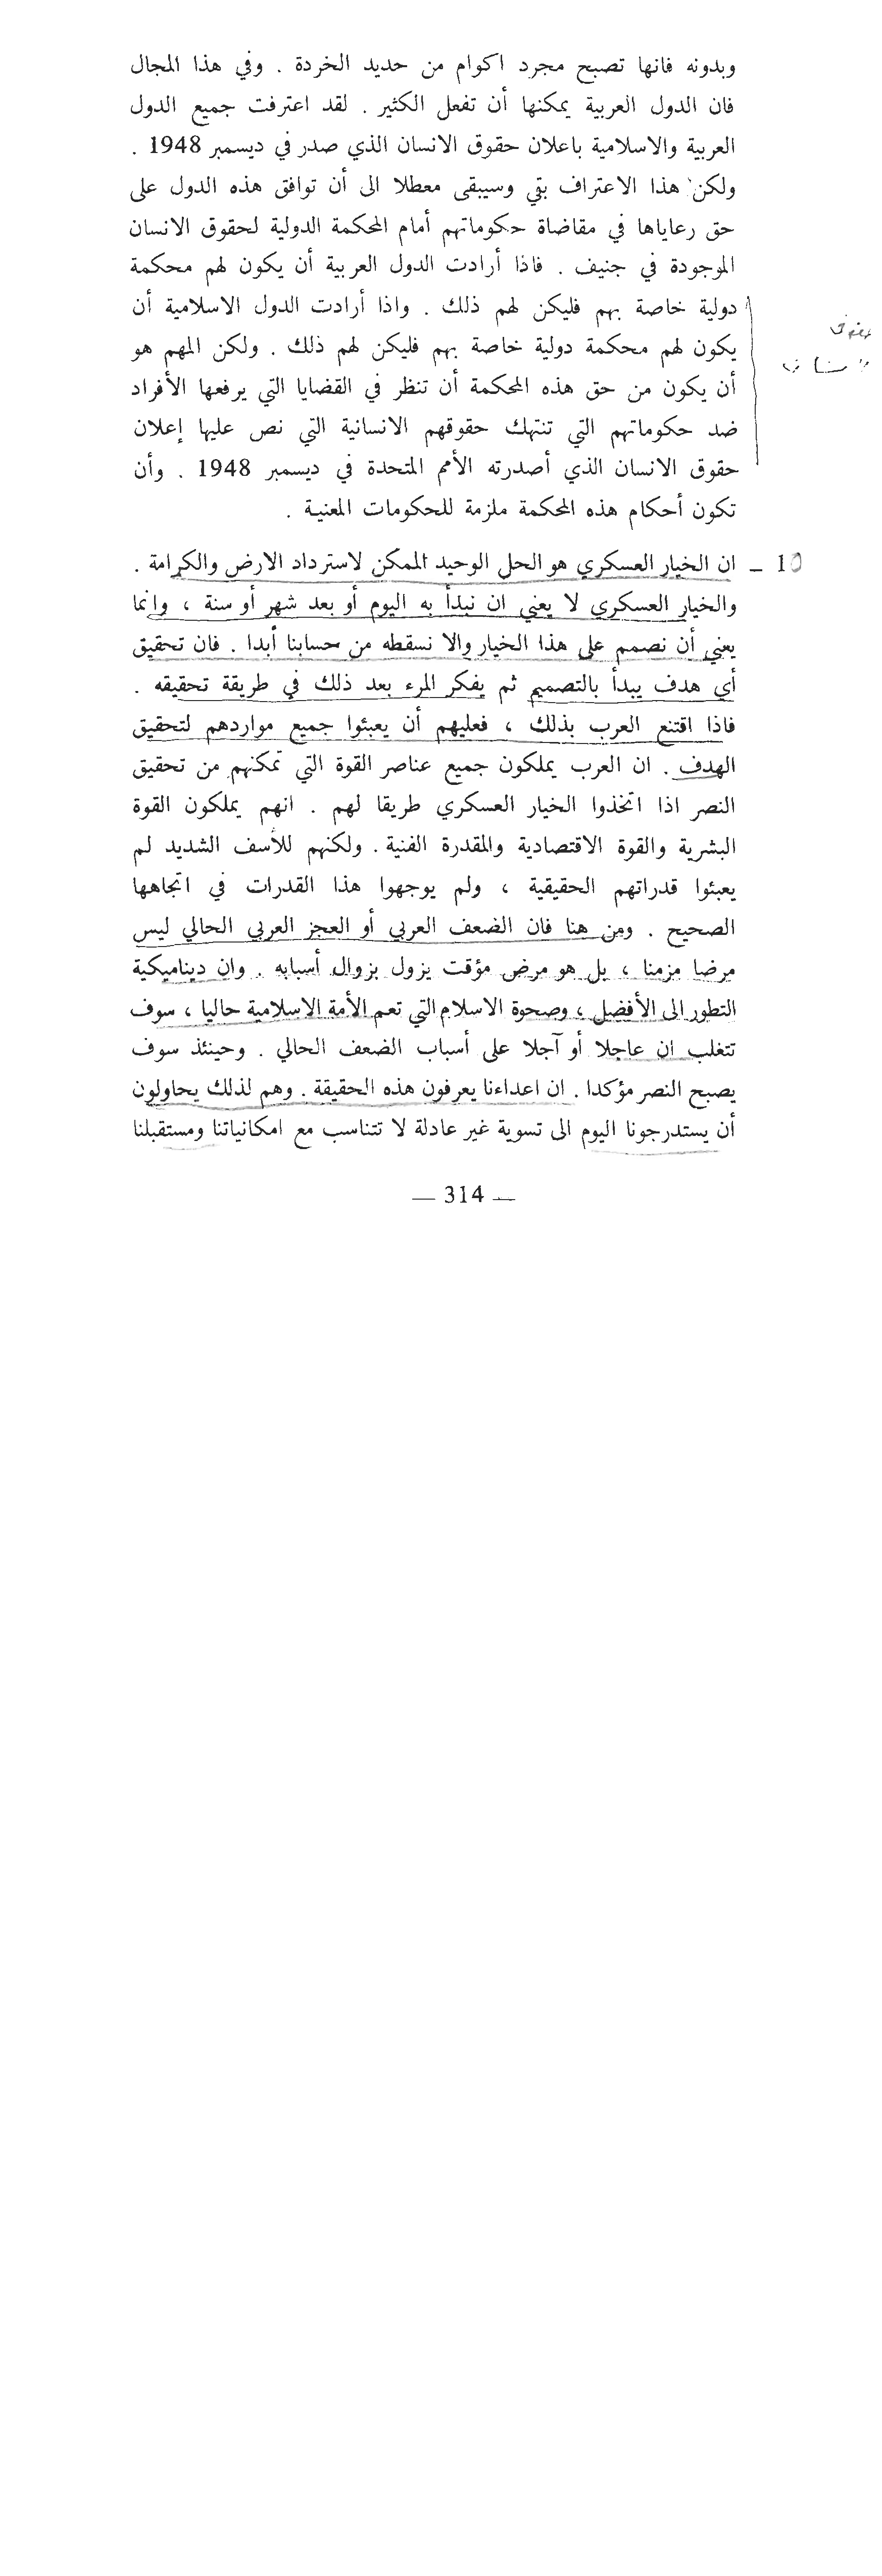 وبدونه فانها تصبح مجرد اكوام من حديد الخردة . وفي هذا المجال
فان الدول العربية يمكنها أن تفعل الكثير . لقد اعترفت جميع الدول
العربية والاسلامية باعلان حقوق الانسان الذي صدر في ديسمبر 1948 .
ولكن هذا الاعتراف بقي وسيبقى معطلا الى أن توافق هذه الدول على
حق رعاياها في مقاضاة حكوماتهم أمام المحكمة الدولية لحقوق الانسان
الموجودة في جنيف . فاذا أرادت الدول العربية أن يكون لهم محكمة
دولية خاصة بهم فليكن لهم ذلك . واذا أرادت الدول الاسلامية أن
يكون لهم محكمة دولية خاصة بهم فليكن لهم ذلك . ولكن المهم هو
أن يكون من حق هذه المحكمة أن تنظر في القضايا التي يرفعها الأفراد
ضد حكوماتهم التي تنتهك حقوقهم الانسانية التي نص عليها إعلان
حقوق الانسان الذي أصدرته الأمم المتحدة في ديسمبر 1948 . وأن
تكون أحكام هذه المحكمة ملزمة للحكومات المعنية .
10 – ان الخيار العسكري هو الحل الوحيد الممكن لاسترداد الارض والكرامة .
والخيار العسكري لا يعني ان نبدأ به اليوم أو بعد شهر أو سنة ، وانما
يعني أن نصمم على هذا الخيار والا نسقطه من حسابنا أبدا . فان تحقيق
أي هدف يبدأ بالتصميم ثم يفكر المرء بعد ذلك في طريقة تحقيقه .
فاذا اقتنع العرب بذلك ، فعليهم أن يعبئوا جميع مواردهم لتحقيق
الهدف . ان العرب يملكون جميع عناصر القوة التي تمكنهم من تحقيق
النصر اذا اتخذوا الخيار العسكري طريقا لهم . انهم يملكون القوة
البشرية والقوة الاقتصادية والمقدرة الفنية . ولكنهم للأسف الشديد لم
يعبئوا قدراتهم الحقيقية ، ولم يوجهوا هذا القدرات في اتجاهها
الصحيح . ومن هنا فان الضعف العربي أو العجز العربي الحالي ليس
مرضا مزمنا ، بل هو مرض مؤقت يزول بزوال أسبابه . وان ديناميكية
التطور الى الأفضل ، وصحوة الاسلام التي تعم الأمة الاسلامية حاليا ، سوف
تتغلب ان عاجلا أو آجلا على أسباب الضعف الحالي . وحينئذ سوف
يصبح النصر مؤكدا . ان اعداءنا يعرفون هذه الحقيقة . وهم لذلك يحاولون
أن يستدرجونا اليوم الى تسوية غير عادلة لا تتناسب مع امكانياتنا ومستقبلنا
— 314 —